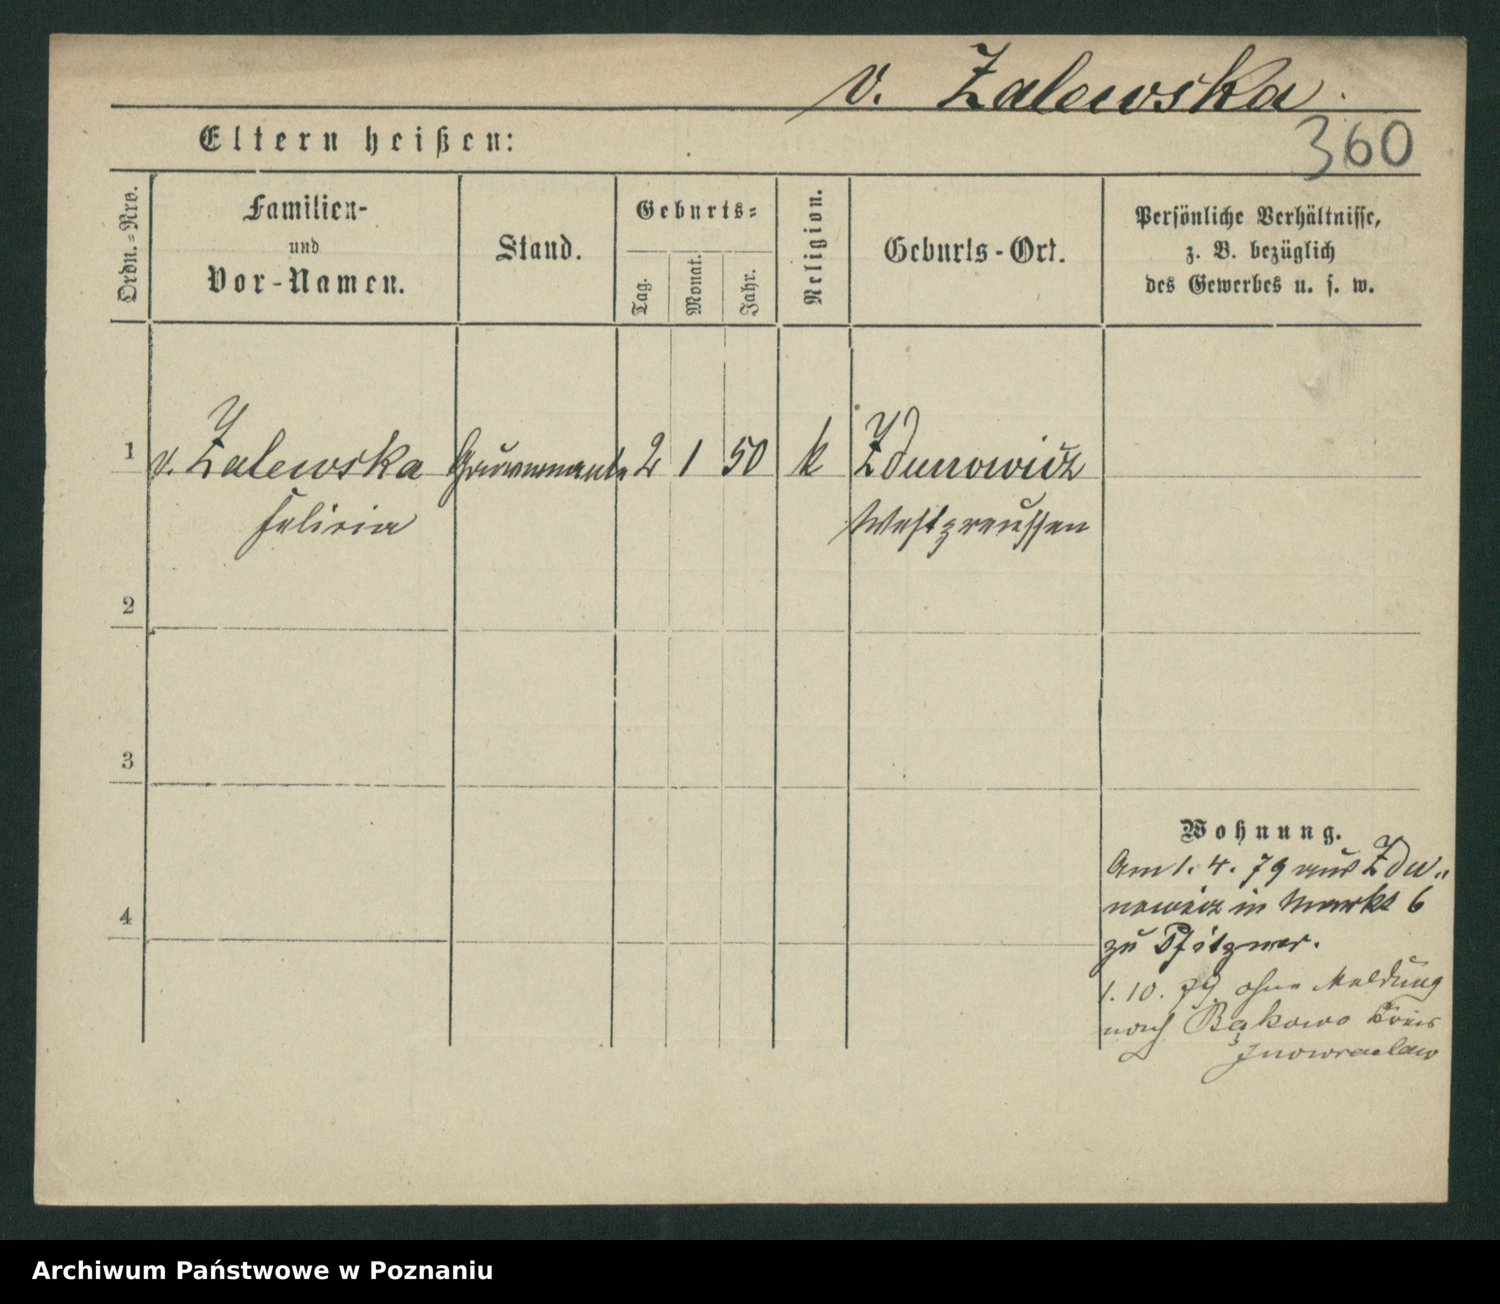 v. Zalewska.
360
Eltern heißen:
Ordn.-Nro.
Familien-
und
Vor-Namen.
Stand.
Geburts-
Tag.
Monat.
Jahr.
Religion.
Geburts-Ort.
Persönliche Verhältnisse,
z. B. bezüglich
des Gewerbes u. s. w.
1 v. Zalewska Gouvernante 2 1 50 k Zdunowicz
Felicia Westpreussen
2
3
Wohnung.
Am 1. 4. 79 aus Zdu-
nowicz in Markt 6
4
zu Pfitzner.
1. 10. 79. ohne Meldung
nach Bąkowo Kreis
Inowraclaw
Archiwum Państwowe w Poznaniu